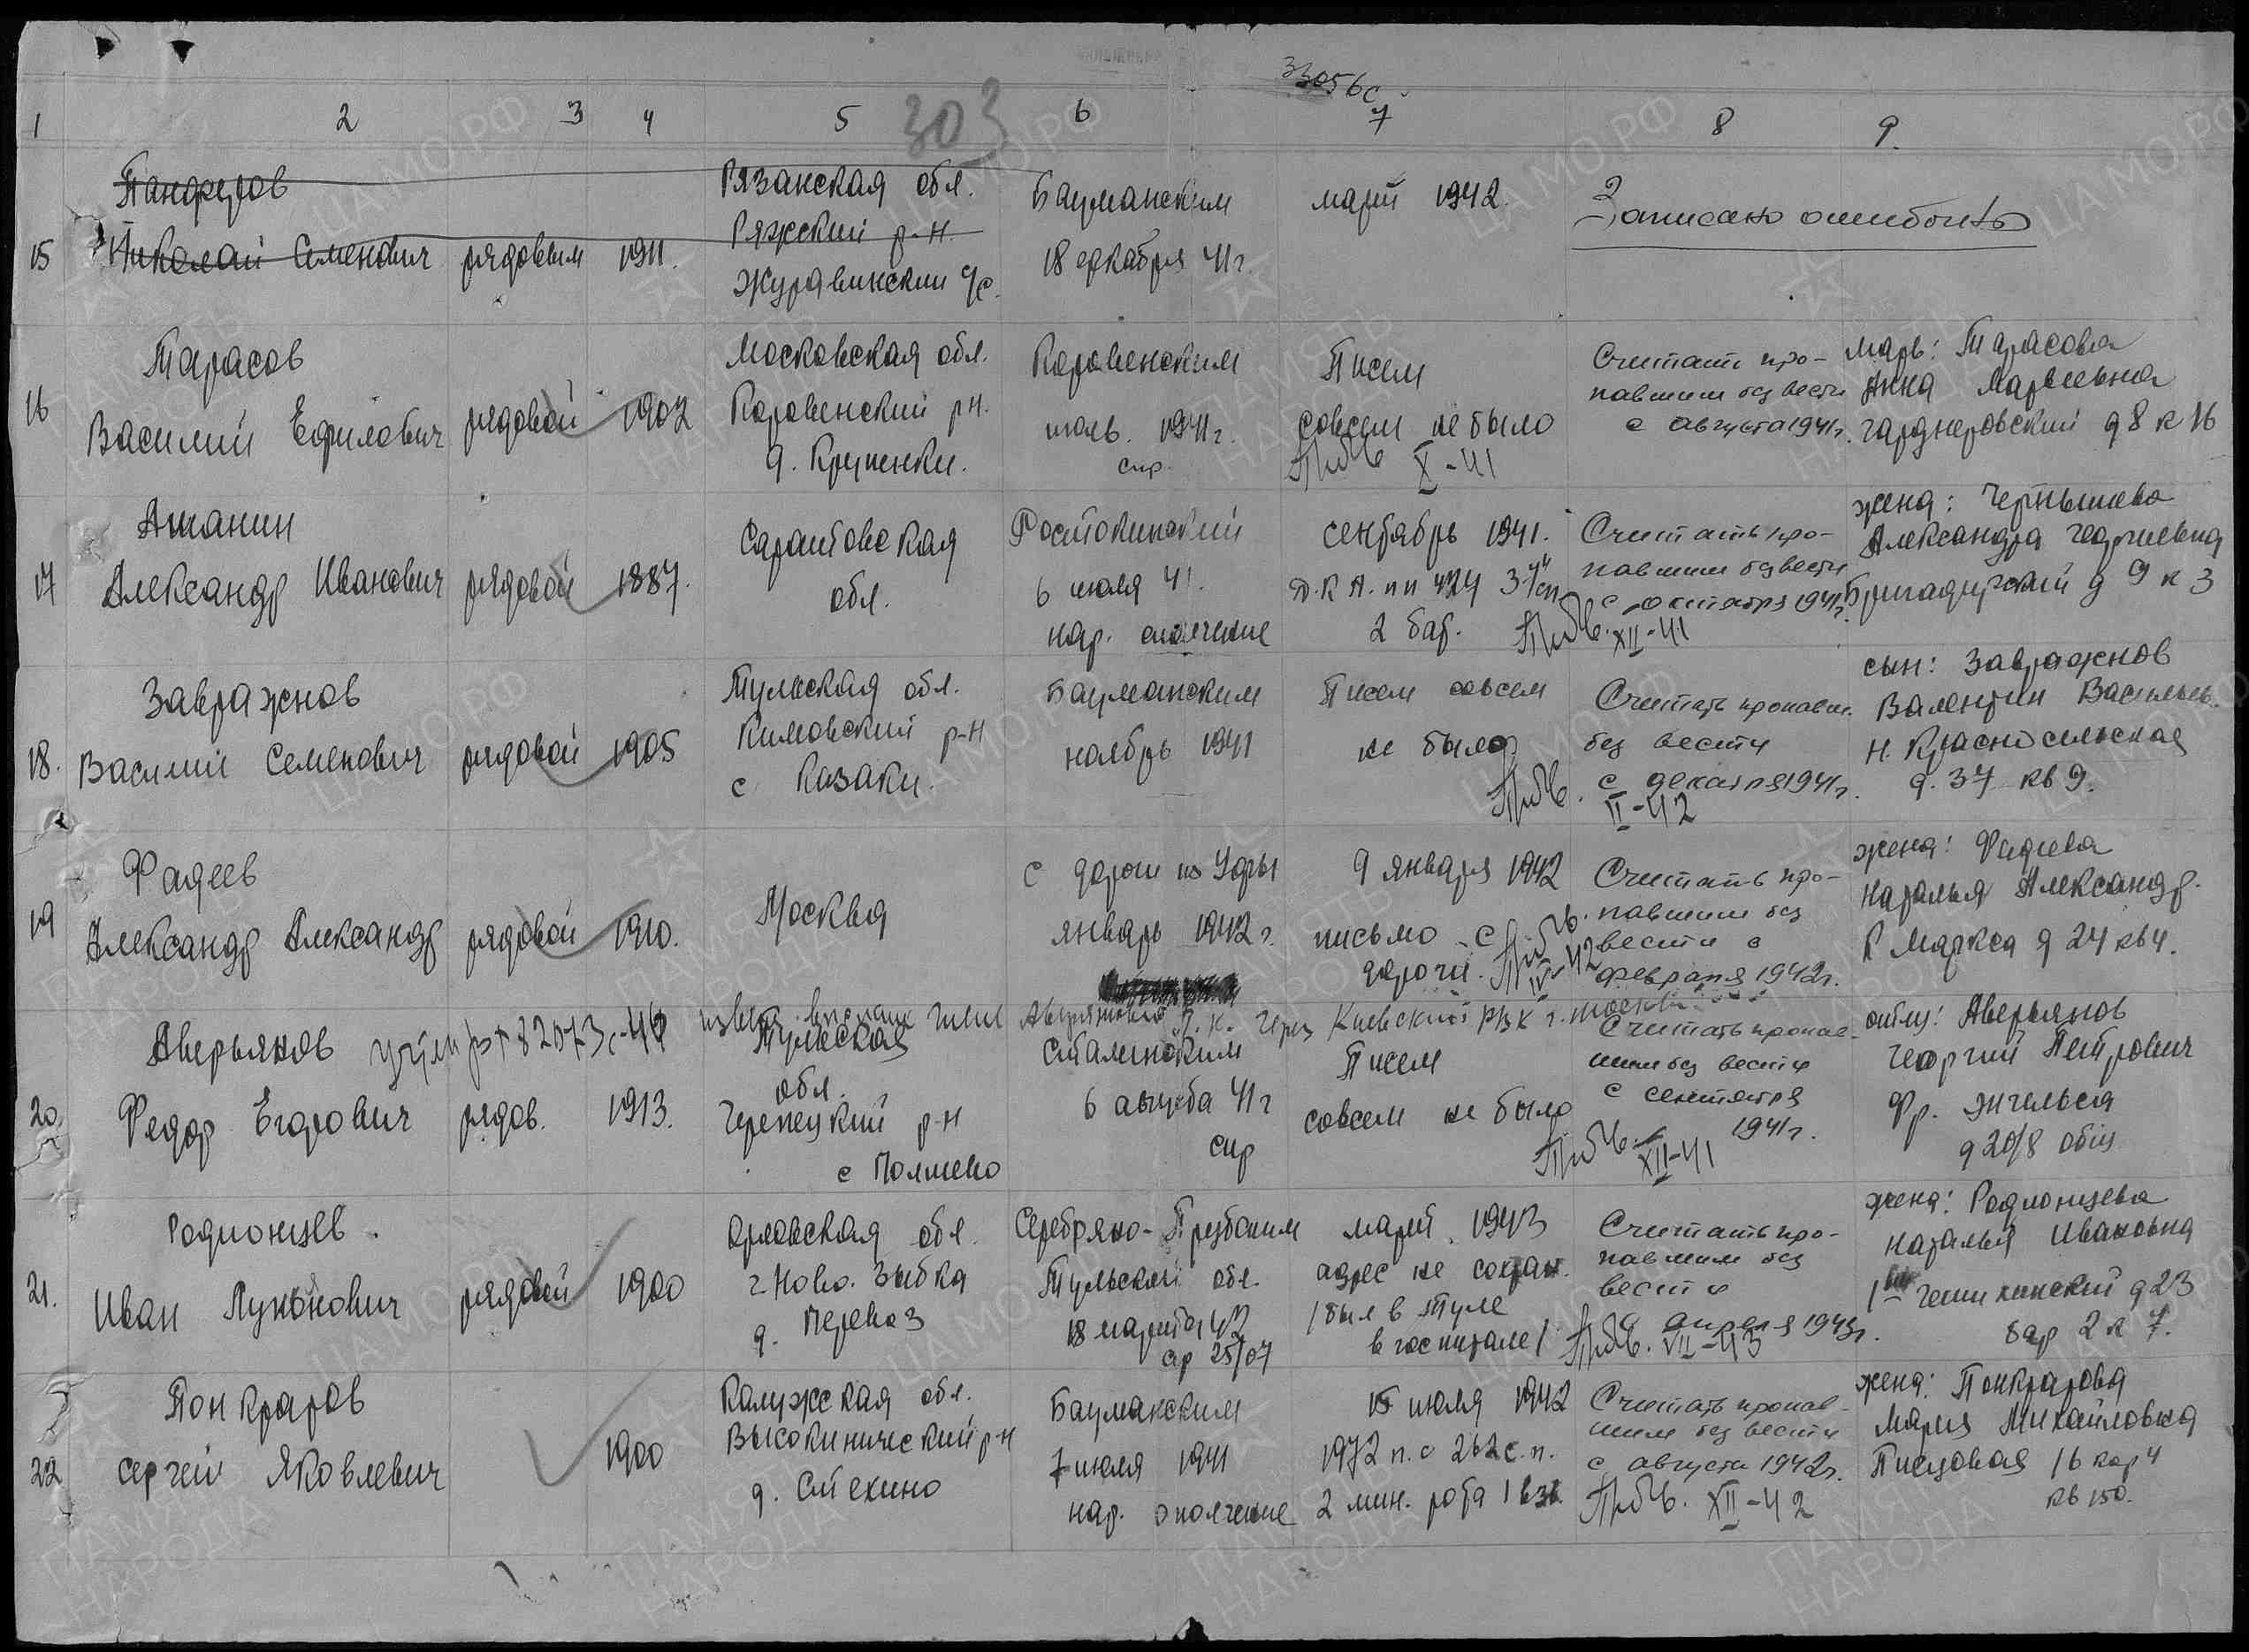 33056с
303
1 2 3 4 5 6 7 8 9.
15
Панферов
Николай Семенович
рядовым
1911.
Рязанская обл.
Ряжский р-н.
Журавинский с/с.
Бауманским
18 декабря 41г.
март 1942.
Записано ошибочно
16
Тарасов
Василий Ефимович
рядовой
1902
Московская обл.
Коровенский рн.
д. Крупенки.
Коровенским
июль. 1941г.
Писем
совсем не было
X-41
Считать про-
павшим без вести
с августа 1941г.
мать: Тарасова
Анна Матвеевна
гарднеровский д 8 к 16
17
Ашанин
Александр Иванович
рядовой
1887.
Саратовская
обл.
Ростокинский
6 июля 41.
нар. ополчение
сентябрь 1941.
Д.К.А. пп 424 3
2 бат.
XII-41
Считать про-
павшим без вести
с октября 1941г.
жена: Чернышева
Александра Георгиевна
Бригадирский д 9 к 3
18.
Завражнов
Василий Семенович
рядовой
1905
Тульская обл.
Кимовский р-н
с Казаки.
Бауманским
ноябрь 1941
Писем совсем
не было
II-42
Считать пропавш.
без вести
с декабря 1941г.
сын: Завражнов
Валентин Васильев.
Н. Красносельская
д. 37 кв 9.
19
Фадеев
Александр Александр
рядовой
1910.
Москва
с дороги из Угры
январь 1942г.
9 января 1942
письмо с
дороги.
IV-42
Считать про-
павшим без
вести с
февраля 1942г.
жена: Фадеева
Наталья Александр.
К Маркса д 24 кв 4.
82073с-46 извещ. выслано жене Аверьяновой через Киевский РВК г. Москвы
20
Аверьянов
Федор Егорович
рядов.
1913.
Тульская
обл.
Черепецкий р-н
Сталинским
6 августа 41г
Писем
совсем не было
XII-41
Считать пропав-
шим без вести
с сентября
1941г.
Аверьянов
Георгий Петрович
Фр. Энгельса
д 20/8 общ
21.
Родионцев.
Иван Лукьянович
рядовой
1900
Орловская обл.
г. Ново. Зыбка
д. Перевоз
Серебряно-Прудским
Тульской обл.
18 марта 43
март. 1943
адрес не сохран.
/был в Туле
в госпитале/
VII-43
Считать про-
павшим без
вести
с апреля 1943г.
жена: Родионцева
Наталья Ивановна
д 23
бар 2 к 7.
22
Понкратов
Сергей Яковлевич
1900
Калужская обл.
Высокиничский р-н
д. Стехино
Бауманским
7 июля 1941
нар. ополчение
15 июля 1942
1972 п.с 262 с.п.
2 мин. рота 1 взв.
XII-42
Считать пропав-
шим без вести
с августа 1942г.
жена: Понкратова
Мария Михайловна
Писцовая 16 кор 4
кв 150.
ЦАМО.РФ
ПАМЯТЬ
НАРОДА